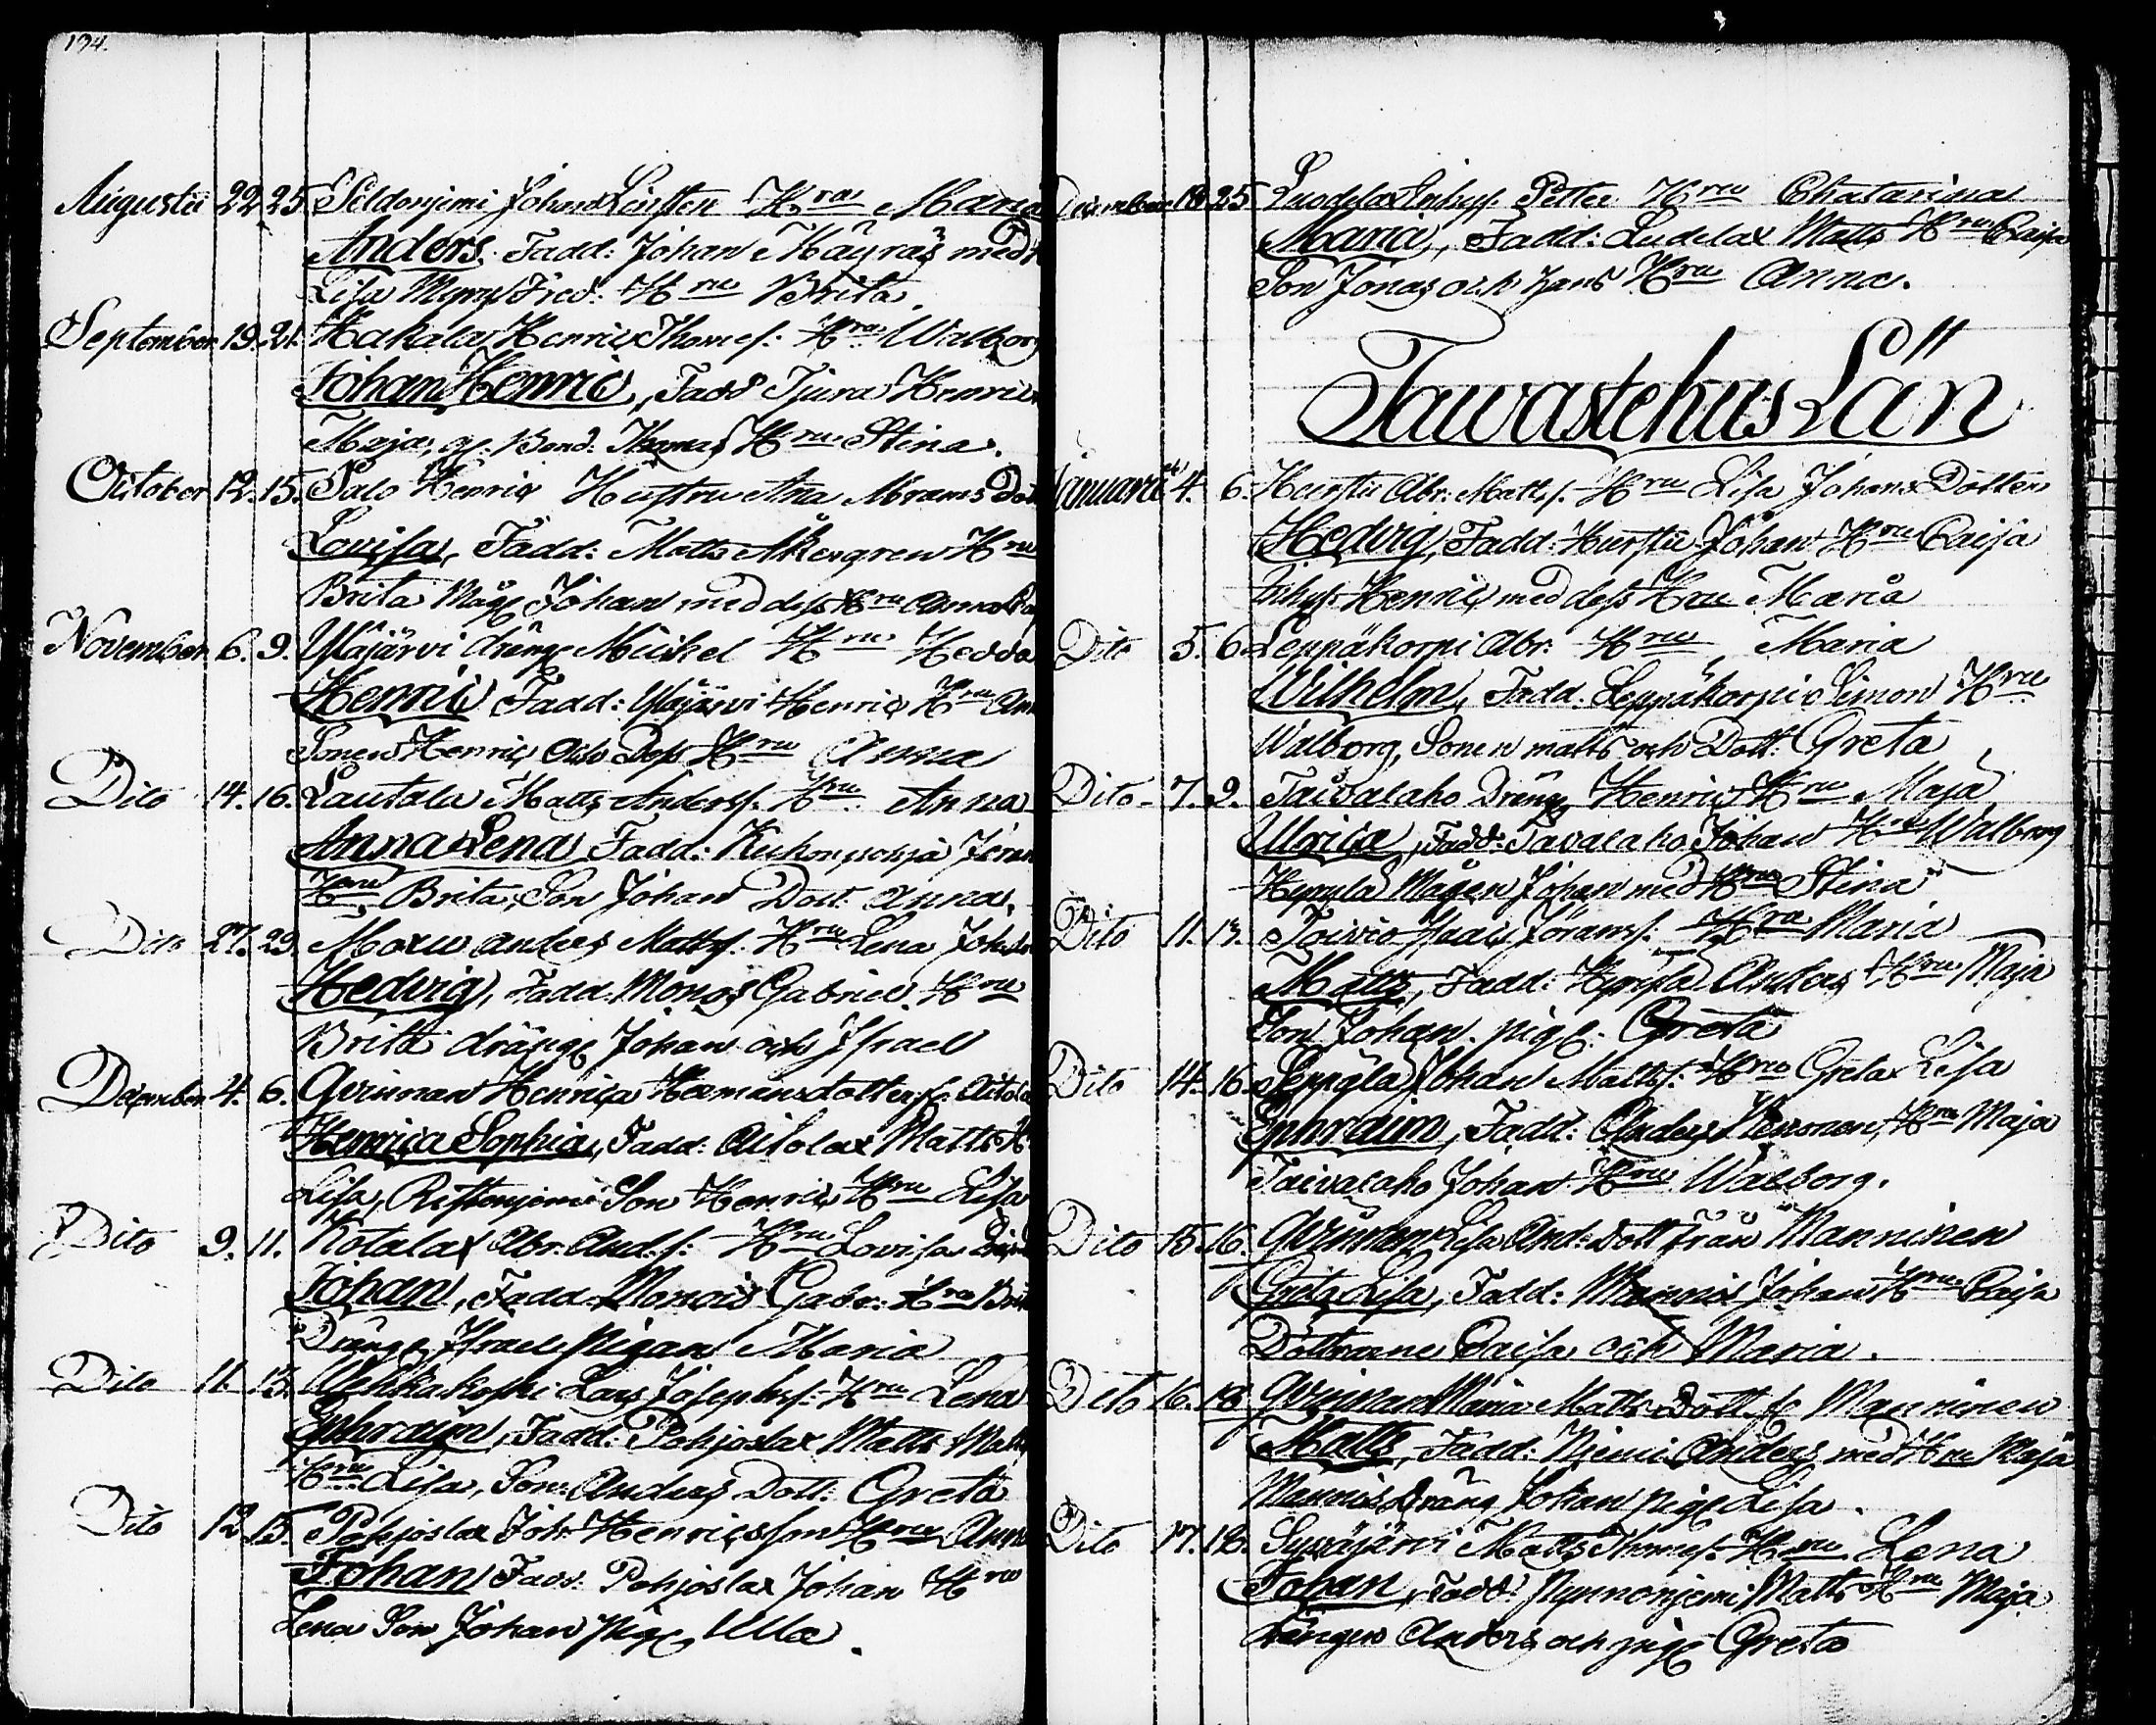 134.
Augusti 22. 25. Sildonjemi Johan Hru Maria
Anders. Fadd: Johan Mäyräs med
Lisa Fred: Hru Brita.
September 19. 21. Hakala Henric Thomes: Hru Walborg
Johan Henric, Fadd Henric
Maja, gl. Bond. Thomas Hru Stina.
October 12. 15. Salo Henric Hustru Anna Abrams Dott
Lovisa, Fadd: Matts Åkergren Hru
Brita Måg Johan med dess Hru Anna
November 6. 9. Yläjärvi dräng Mickel Hru Hedda
Henric Fadd: Yläjärvi Henric Hru
Sonen Henric och Dess Hru Anna
Dito 14. 16. Lautala Matts Anderss. Hru Anna
Anna Lena, Fadd: Kuhonpohja
Hru Brita, Son Johan Dott. Anna.
Dito 27. 29. Anders Mattss. Hru Lena
Hedvig, Fadd. Monois Gabriel Hru
Brita dräng Johan och Israel
December 4. 6. Qvinnan Henrica Hermansdotter fr.
Henrica Sophia, Fadd: Aitolax Matts
Lisa, Son Henric Hru Lisa
Dito 9. 11. Kotalax Abr. And.s: Hru Lovisa
Johan, Fadd Monois Gabr: Hru
Dräng Israel Pigan Maria
Dito 11. 13. Wehkakoski Lars Josephs: Hru Lena
Ephraim, Fadd: Pohjoslax Matts
Hru Lisa, Son Anders Dott: Greta
Dito 12. 15. Pohjoslax Joh. Henricsson Hru
Johan Fadd. Pohjoslax Johan Hru
Lena Son Johan Pig. Ulla.
December 25. Luodelax Inhys. Petter Hru Chatarina
Maria, Fadd: Ludelax Matts Hru Caisa
Son Jonas och hans Hru Anna.
Tawastehus Län
Januarii 4. 6. Hurstu Abr. Matts s. Hru Lisa Johans Dotter
Hedvig, Fadd: Hurstu Johan Hru Caisa
Inhys Henric med dess Hru Maria
Dito 5. 6. Leppäkorpi Abr. Hru Maria
Wilhelm, Fadd: Leppäkorpi Simon Hru
Walborg, Sonen matts och Dott: Greta
Dito 7. 9. Taivalaho Dräng Henric Hru Maja
Ulrica, Fadd: Tavalaho Johan Hru Walborg
Hyrylä Mågen Johan med Hru Stina
Dito 11. 13. Toivio Isaac Jöranss: Hru Maria
Matts, Fadd: Anders Hru Maja
Son Johan. pig: Greta
Dito 14. 16. Seppälä Johan Mattss: Hru Greta Lisa
Ephraim, Fadd: Anders Hru Maja
Taivalaho Johan Hru Walborg.
Dito 15. 16. Qvinnan Lisa And: Dott från Manninen
Greta Lisa, Fadd: Johan Hru Caisa
Döttrarne Caisa och Maria.
Dito 16. 18. Qvinnan Maria Matts Dott fr Manninen
Matts, Fadd: Niemi Anders med Hru Maja
Dräng Johan pige Lisa.
Dito 17. 18. Syväjärvi Matts Thomess. Hru Lena
Johan, Fadd: Matts Hru Maja
Drängen Anders och pige Greta